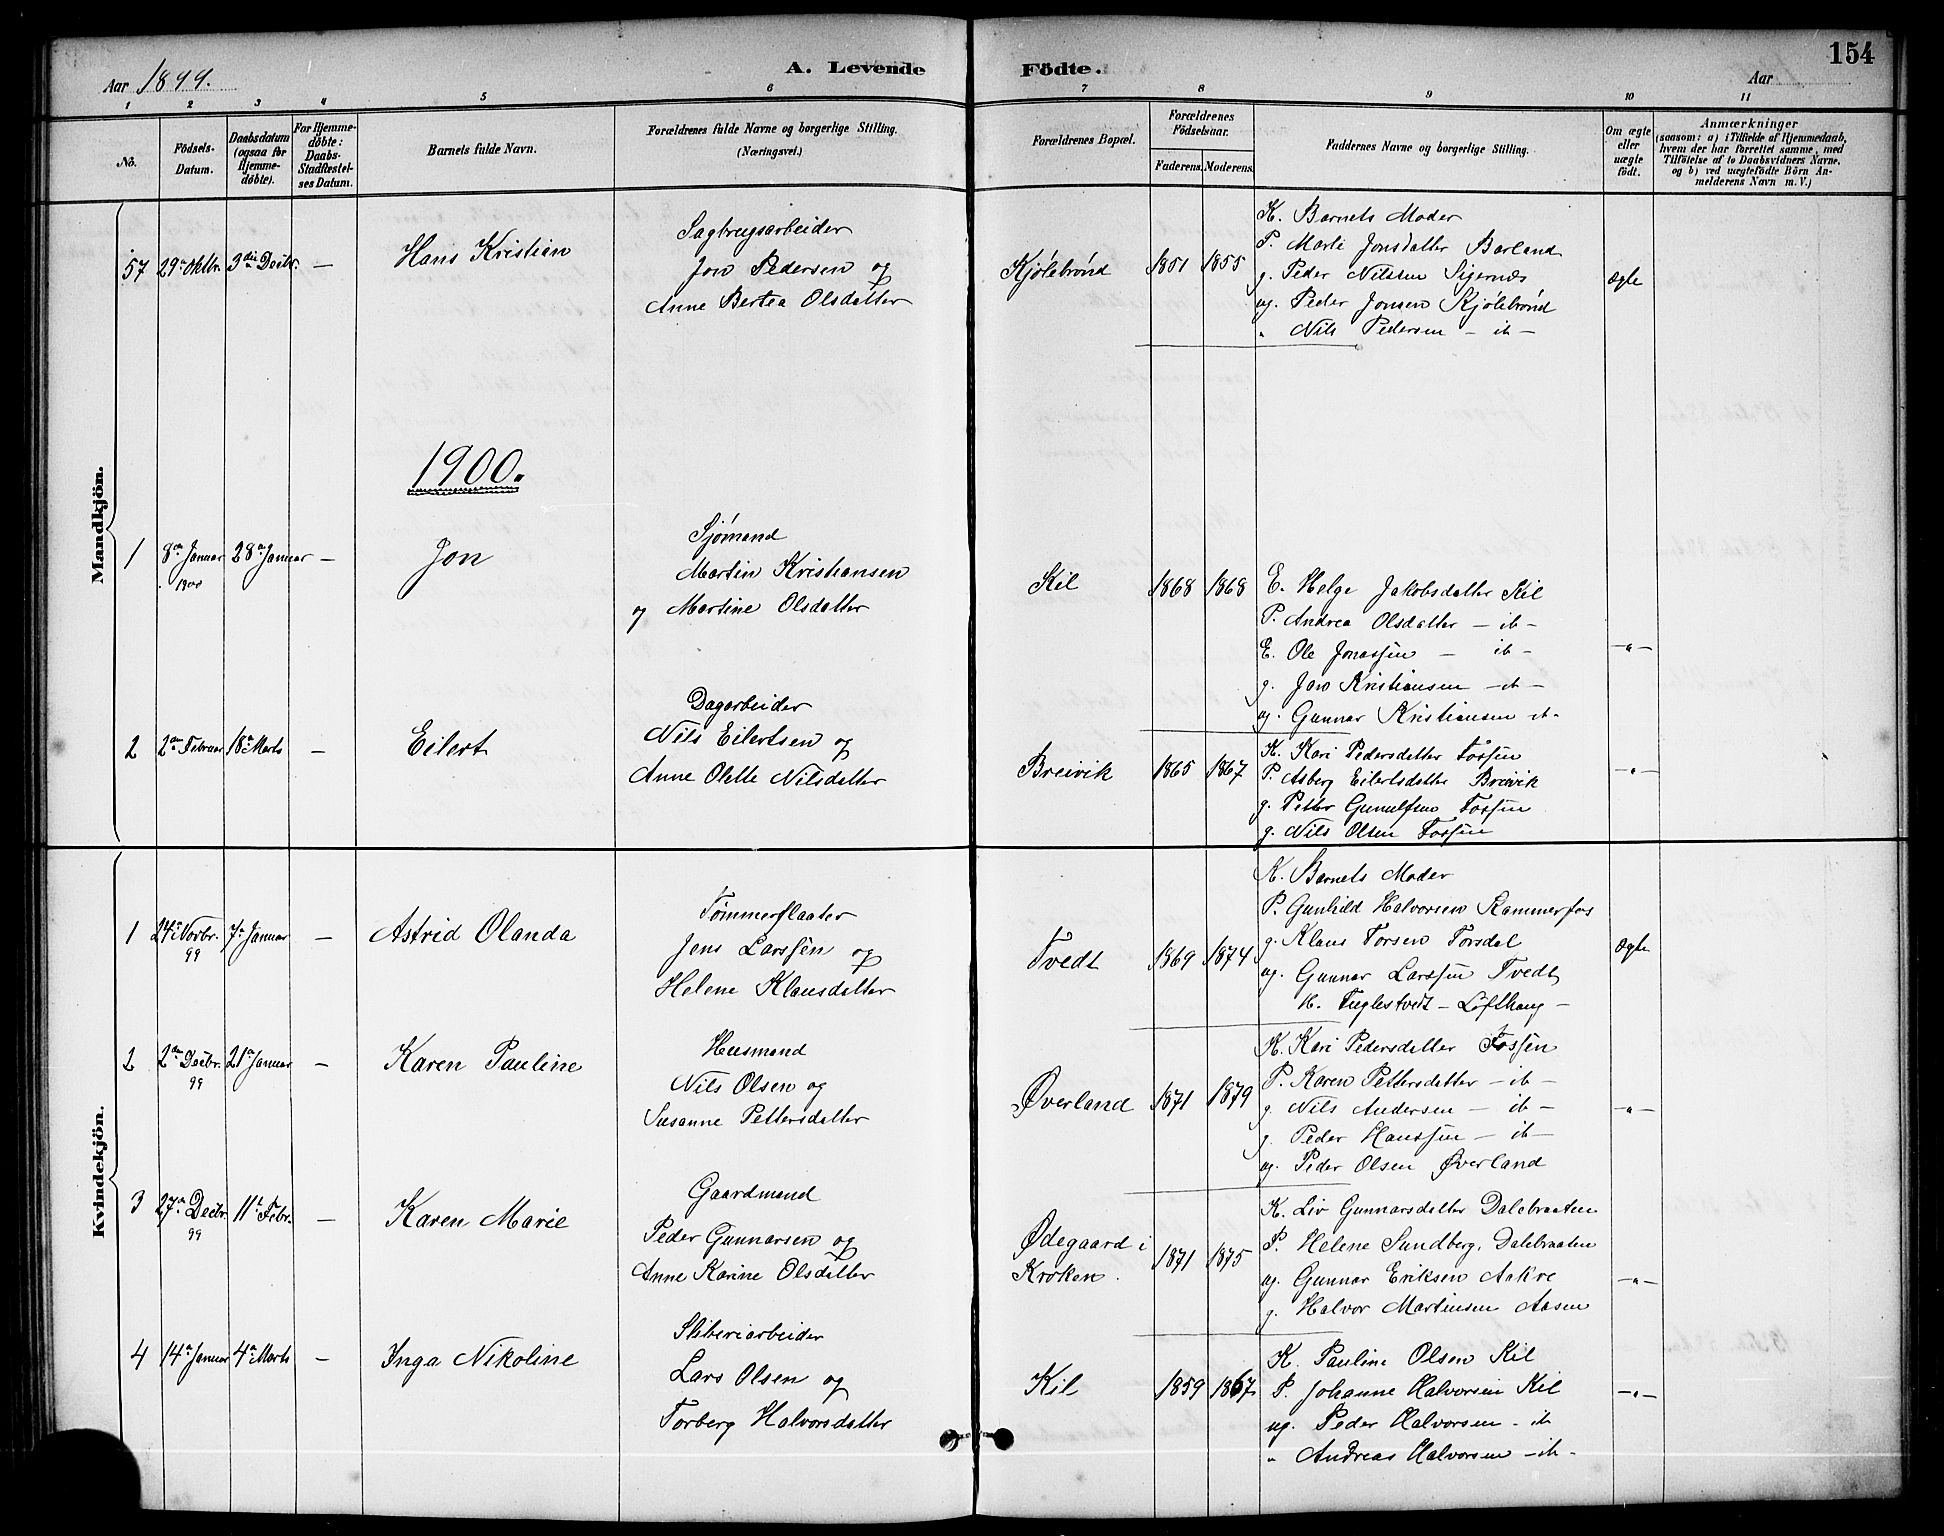 154
Aar 1899.
A. Levende Födte.
Aar
1 2 3 4 5 6 7 8 9 10 11
No.
Födsels-Datum.
Daabsdatum (ogsaa for Hjemme-döbte).
For Hjemme-döbte: Daabs-Stadfæstel-ses Datum.
Barnets fulde Navn.
Forældrenes fulde Navne og borgerlige Stilling.
(Næringsvei.)
Forældrenes Bopæl.
Forældrenes Födselsaar.
Faderens. Moderens.
Faddernes Navne og borgerlige Stilling.
Om ægte eller uægte födt.
Anmærkninger
(saasom: a) i Tilfælde af Hjemmedaab,
hvem der har forrettet samme, med
Tilföielse af to Daabsvidners Navne.
og b) ved uægtefödte Börn An-
melderens Navn m. V.)
Mandkjön.
57 29de Oktbr. 3die Decbr. — Hans Kristian
Sagbrugsarbeider
Jon Pedersen og
Anne Bertea Olsdatter
Kjölebrönd 1851 1855
K. Barnets Moder
P. Marte Jonsdatter Barland
g. Peder Nilsen Sigernæs
ug. Peder Jonsen Kjölebrönd
" Nils Pedersen — it —
ægte
1900.
1 8de Januar 1900 28de Januar — Jon
Sjömand
Martin Kristiansen
og Martine Olsdatter
Kil 1868 1868
E. Helge Jakobsdatter Kil
P. Andrea Olsdatter — it —
E. Ole Jonassen — it —
g. Jon Kristiansen — it —
ug. Gunnar Kristiansen it —
— " —
2 2den Februar 18de Marts — Eilert
Dagarbeider
Nils Eilertsen og
Anne Olette Nilsdatter
Breivik 1865 1867
K. Kari Pedersdatter Fossen
P. Asberg Eilertsdatter Breivik
g. Petter Gunulfsen Fossen
g. Nils Olsen Fossen
— " —
Kvindekjön.
1 24de Novbr. 99 7de Januar — Astrid Olanda
Tömmerflaater
Jens Larssen og
Helene Klausdatter
Tvedt 1869 1874
K. Barnets Moder
P. Gunhild Halvorsen Kammerfos
g. Klaus Torsen Torsdal
ug. Gunnar Larssen Tvedt
H. Fuglestvedt — Lofthaug —
ægte
2 2den Decbr. 99 21de Januar — Karen Pauline
Husmand
Nils Olsen og
Susanne Pettersdatter
Øverland 1871 1879
K. Kari Pedersdatter Fossen
P. Karen Pettersdatter — it —
g. Nils Andersen — it —
g. Peder Hanssen — it —
ug. Peder Olsen Øverland
— " —
3 27de Decbr. 99 11te Febr. — Karen Marie
Gaardmand
Peder Gunnarsen og
Anne Karine Olsdatter
Ødegaard i
Kroken. 1871 1875
K. Liv Gunnarsdatter Dalebraaten
P. Helene Sundberg, Dalebraaten
ug. Gunnar Eriksen Aakre
g. Halvor Martinsen Aasen
— " —
4 14de Januar 4de Marts — Inga Nikoline
Sliberiarbeider
Lars Olsen og
Torberg Halvorsdatter
Kil 1859 1867
K. Pauline Olsen Kil
P. Johanne Halvorsen Kil
ug. Peder Halvorsen — it
" Andreas Halvorsen — it —
— " —